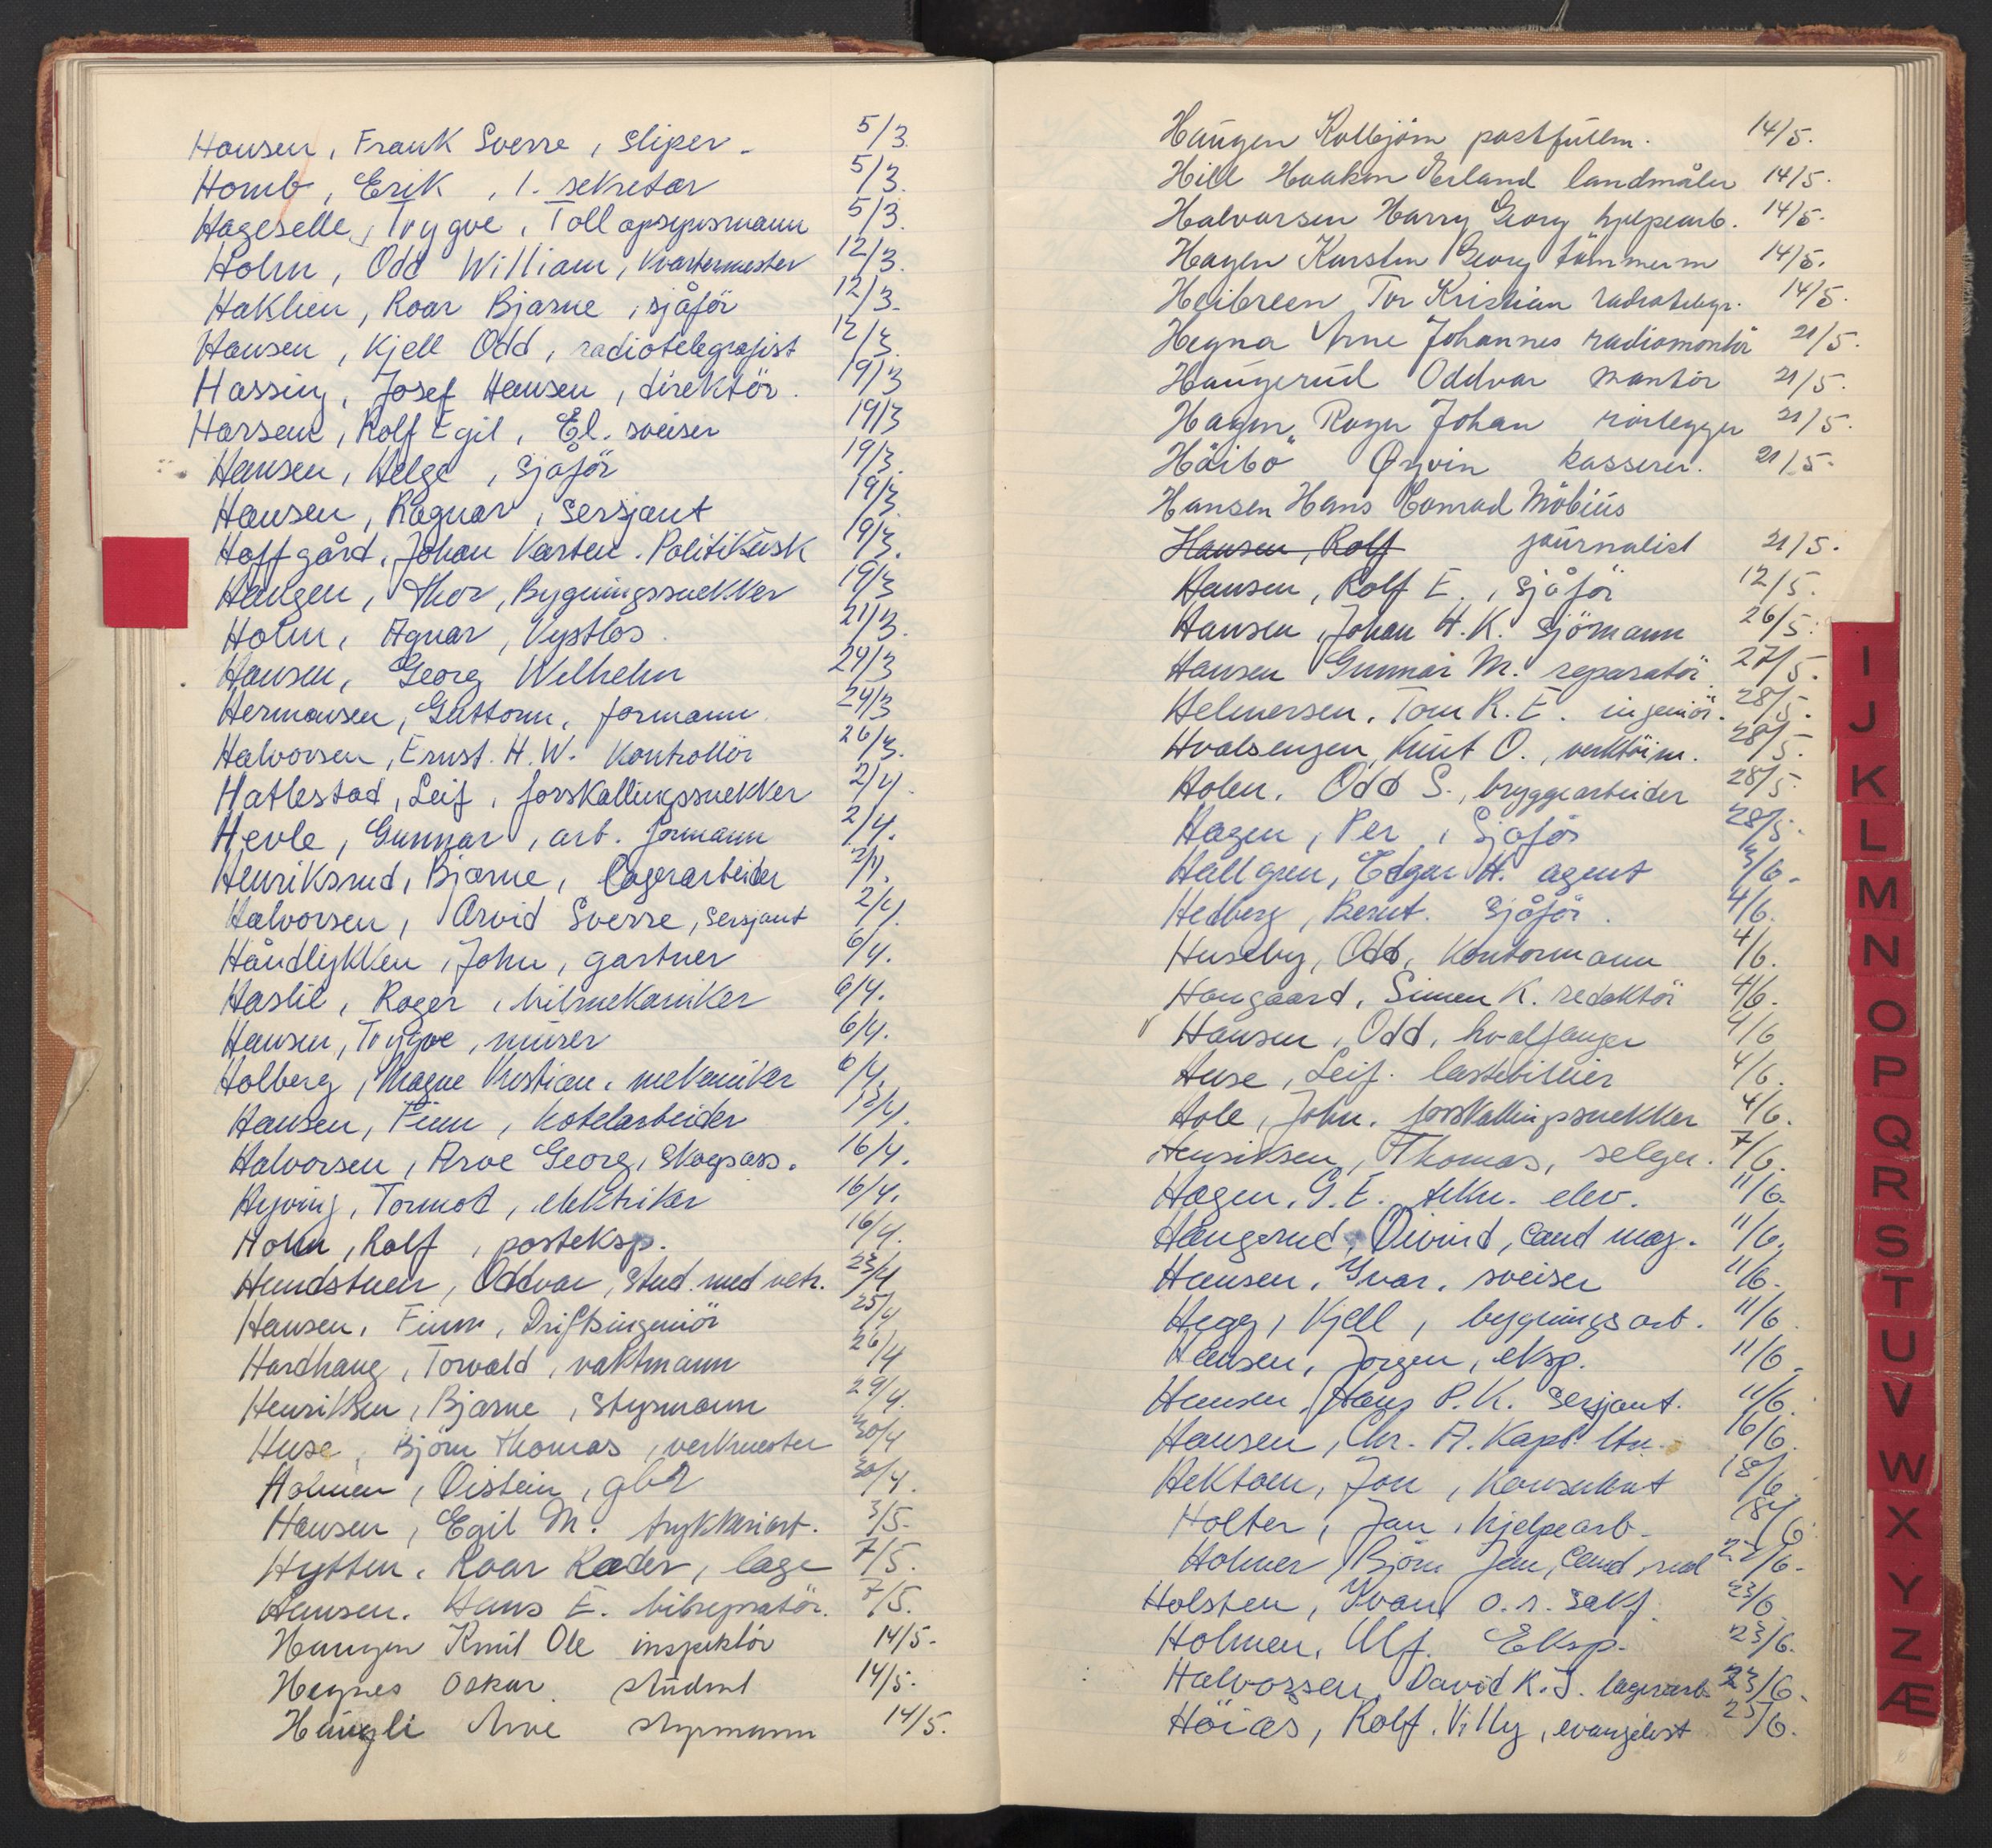 Hansen, Frank Sverre, Sliper. 5/3.
Homb, Erik, 1. sekretær 5/3.
Hageselle, Trygve, Tolloppsynsmann 5/3.
Holm, Odd William, Kvartermester 12/3.
Haklien, Roar Bjarne, sjåför 12/3.
Hansen, Kjell Odd, radiotelegrafist 12/3.
Hassing, Josef Hansen, direktör. 19/3
Hansen, Rolf Egil, El. sveiser 19/3
Hansen, Helge, Sjåför 19/3.
Hansen, Ragnar, Sersjant 19/3.
Hoffgård, Johan Karsten. Politikusk 19/3.
Haugen, Thor, Bygningssnekker 19/3
Holm, Agnar, Kystlos. 21/3.
Hansen, Georg Wilhelm 24/3
Hermansen, Guttorm, formann. 24/3
Halvorsen, Ernst. H.W. Kontrollör 26/3.
Hatlestad, Leif, forskallingssnekker 2/4.
Hevle, Gunnar, arb. formann 2/4.
Henriksrud, Bjarne, lagerarbeider 2/4.
Halvorsen, Arvid Sverre, Sersjant 2/4.
Håndlykken, John, gartner 6/4.
Haslie, Roger, bilmekaniker 6/4.
Hansen, Trygve, murer 6/4.
Holberg, Magne Kristian, mekaniker 6/4.
Hansen, Finn, hotelarbeider 13/4.
Halvorsen, Arve Georg, Skogsass. 16/4.
Hyving, Tormod, elektriker 16/4.
Holm, Rolf, posteksp. 16/4.
Hundstuen, Oddvar, Stud. med vetr. 23/4
Hansen, Finn, Driftsingeniör 25/4
Hardhaug, Torvald, vaktmann 26/4
Henriksen, Bjarne, Styrmann 29/4.
Huse, Björn Thomas, verkmester 30/4
Holmen, Öistein, gbr 30/4.
Hansen, Egil M. trykkeriarb. 3/5.
Hytten, Roar Roder, lege 7/5.
Hansen. Hans E. bilreparatör. 7/5.
Haugen Knut Ole inspektör 14/5.
Høgnes Oskar student 14/5.
Haugli Arve styrmann 14/5.
Haugen Kolbjörn postfullm. 14/5.
Hill Haakon Erland landmåler 14/5.
Halvorsen Harry Georg hjelpearb. 14/5.
Hagen Karsten Georg tömmerm 14/5.
Heibreen Tor Kristian radiotelegr. 14/5.
Hegna Arne Johannes radiomontör 21/5.
Haugerud Oddvar montör 21/5.
Hagen Roger Johan rörlegger 21/5.
Höibö Øyvin kasserer. 21/5.
Hansen Hans Conrad Möbius
Hansen, Rolf journalist 21/5.
Hansen, Rolf E., Sjåför 12/5.
Hansen, Johan H.K. Sjömann 26/5.
Hansen Gunnar M. reparatör 27/5.
Helmersen, Tom R.E. ingeniör. 28/5.
Hvalsengen, Knut O., verktöim. 28/5.
Holen, Odd S., bryggearbeider 28/5.
Hagen, Per, Sjåför 28/5.
Hallgren, Edgar H. agent 3/6.
Hedberg, Bernt. Sjåför. 4/6.
Huseby, Odd, Kontormann 4/6.
Haugaard, Simen K. redaktör 4/6.
Hansen, Odd, hvalfanger 4/6
Huse, Leif. lastebileier 4/6.
Hole, John, forskallingssnekker 4/6.
Henriksen, Thomas, selger. 7/6.
Hagen, G.E. tekn. elev. 11/6.
Haugerud, Öivind, Cand mag. 11/6.
Hansen, Yvar, sveiser 11/6.
Hegg, Kjell, bygningsarb. 11/6.
Hansen, Jörgen, eksp. 11/6.
Hansen, Hans P.K. Sersjant. 11/6.
Hansen, Chr. A. Kapt. ltn. 16/6.
Hektoen, Jon, Konsulent 18/6.
Holter, Jan, hjelpearb. 18/6.
Holmer, Björn Jan, Cand. real 22/6.
Holsten, Yvan o.r. Sakf. 23/6.
Holmen, Ulf. Eksp. 23/6.
Halvorsen, David K.J. lagerarb. 23/6.
Höiås, Rolf. Villy, evangelist 25/6.
I
J
K
L
M
N
O
P
Q
R
S
T
U
V
W
X
Y
Z
Æ